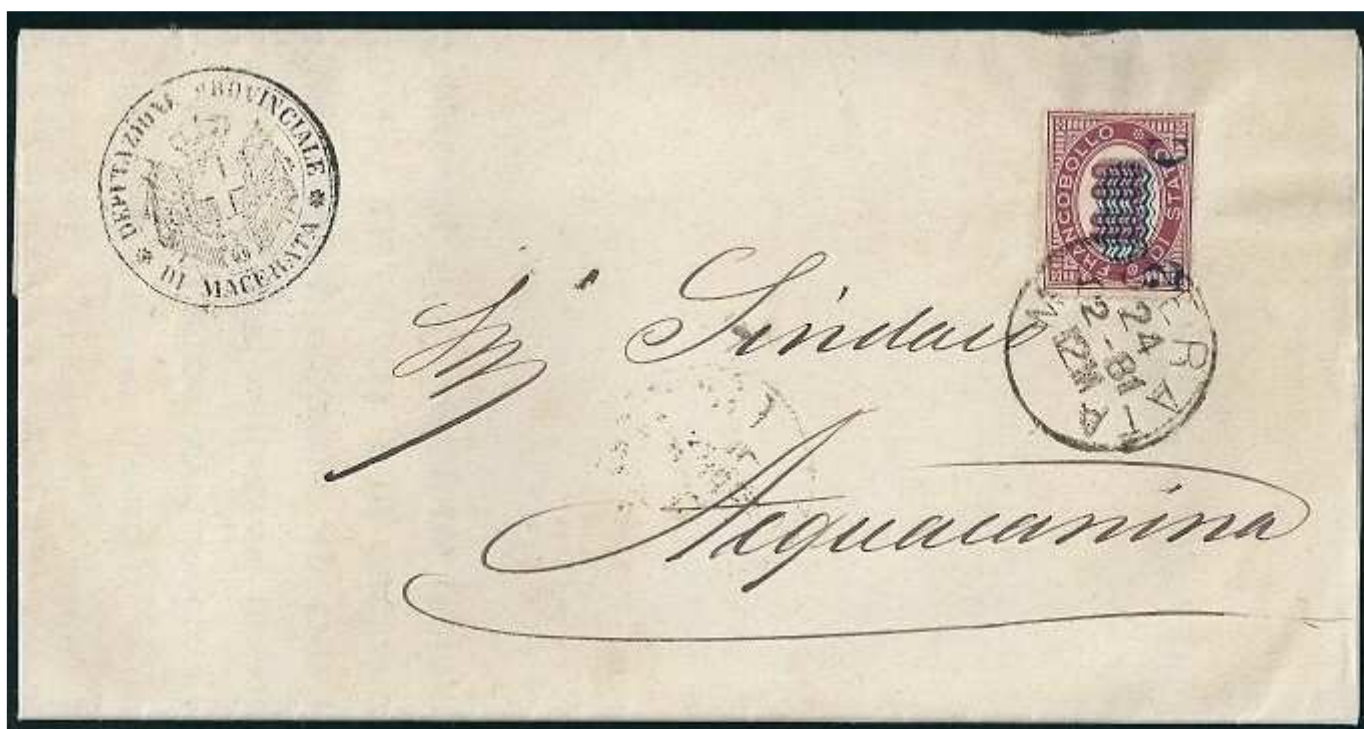 * DEPUTAZIONE PROVINCIALE *
DI MACERATA
FRANCOBOLLO
DI STATO
MACERATA
24
2-81
12M
Sindaco
Acquacanina